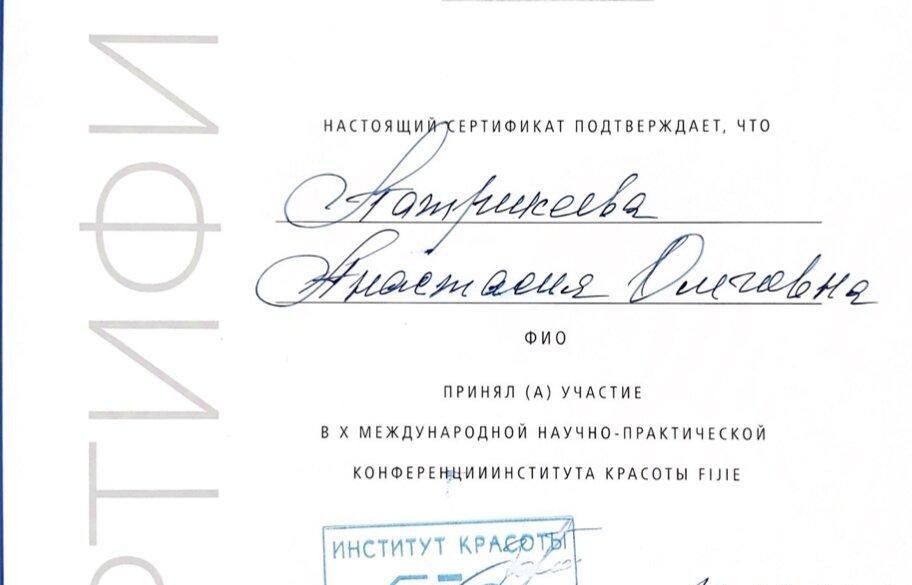 РТИФИ
НАСТОЯЩИЙ СЕРТИФИКАТ ПОДТВЕРЖДАЕТ, ЧТО
Патрикеева
Анастасия Олеговна
ФИО
ПРИНЯЛ (А) УЧАСТИЕ
В X МЕЖДУНАРОДНОЙ НАУЧНО-ПРАКТИЧЕСКОЙ
КОНФЕРЕНЦИИИНСТИТУТА КРАСОТЫ FIJIE
ИНСТИТУТ КРАСОТЫ